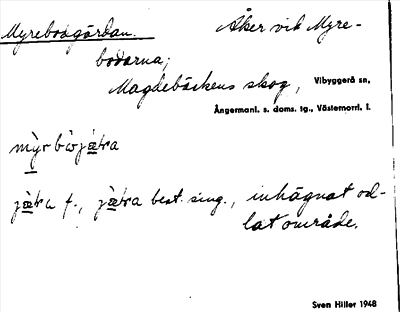 Myrebodgärdan. Åker vid Myre-
bodarna;
Magdebäckens skog, Vibyggerå sn,
Ångermanl. s. doms. tg., Västernorrl. l.
mỳrbòjæ̀ra
jæ̀ra f., jæ̀ra best. sing., inhägnat od-
lat område.
Sven Hiller 1948